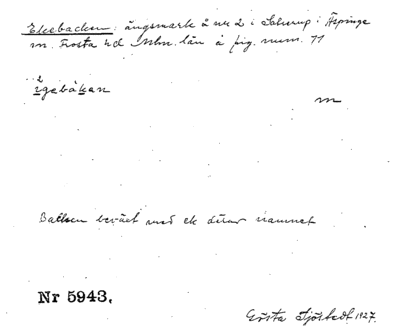 Ekebacken: ängsmark å nr 2 i Salserup i Äspinge
sn. Frosta hd Mlm. län å fig. num. 71
2
igebákan
m
Backen beväxt med ek därav namnet
Nr 5943.
Gösta Sjöstedt 1927.